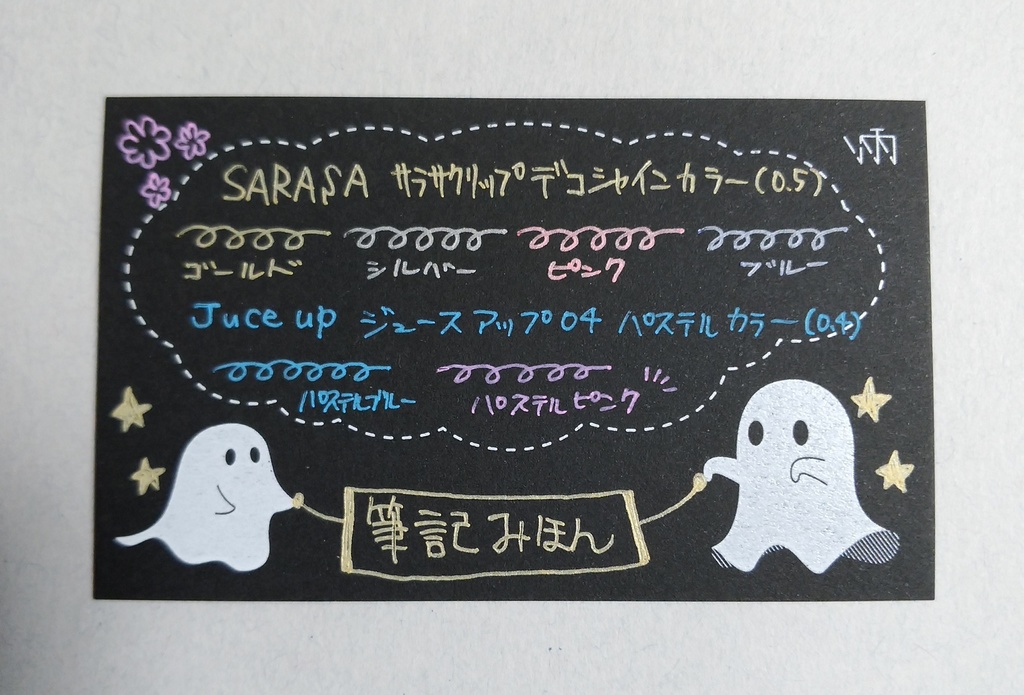 SARASA サラサクリップデコシャインカラー(0.5)
ゴールド シルバー ピンク ブルー
Juce up ジュースアップ04 パステルカラー(0.4)
パステルブルー パステルピンク
筆記みほん